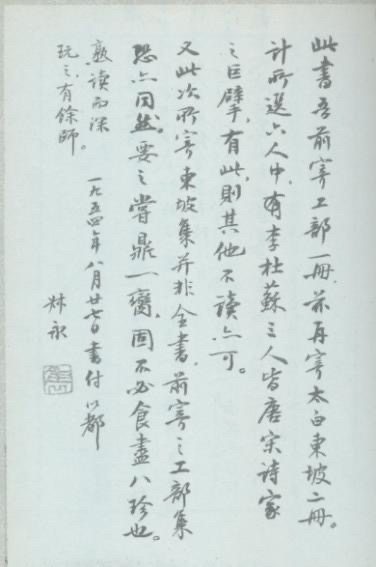 此書吾前寄工部一冊,茲再寄太白東坡二冊。
計所選六人中,有李杜蘇三人皆唐宋詩家
之巨擘,有此,則其他不讀亦可。
又此次所寄東坡集并非全書,前寄之工部集
恐亦同然。要之嘗鼎一臠,固不必食盡八珍也。
熟读而深
玩之,有餘師。
一九五四年八月廿七日書付以都
叔永